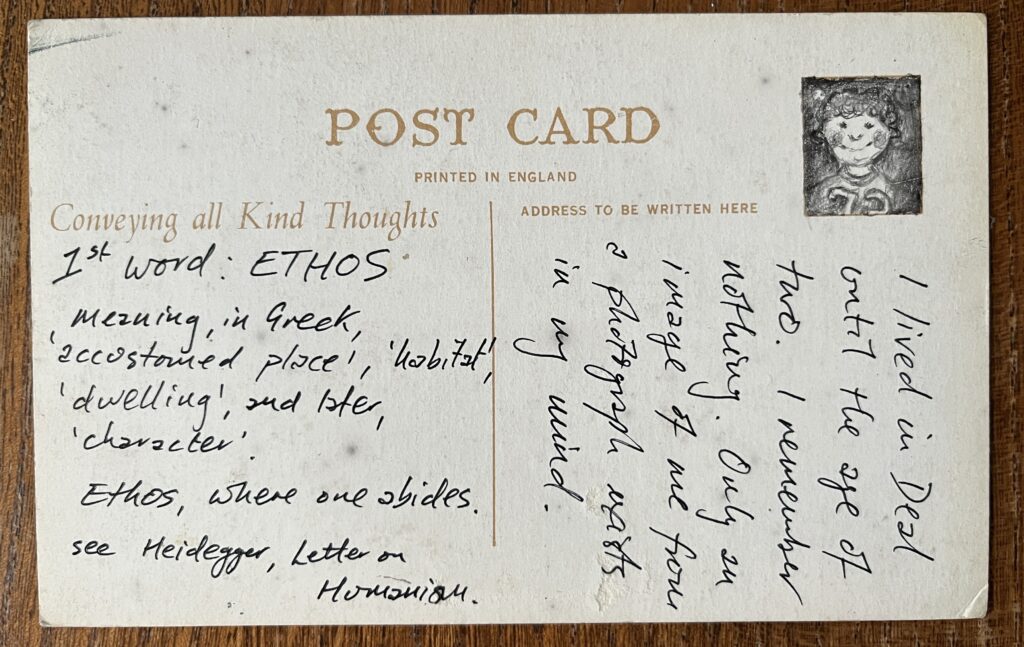 POST CARD
PRINTED IN ENGLAND
Conveying all Kind Thoughts
1st word: ETHOS
, meaning, in Greek,
'accustomed place', 'habitat',
'dwelling', and later,
'character'.
Ethos, where one abides.
see Heidegger, Letter on
Humanism.
ADDRESS TO BE WRITTEN HERE
73
I lived in Deal
until the age of
two. I remember
nothing. Only an
image of me from
a photograph exists
in my mind.